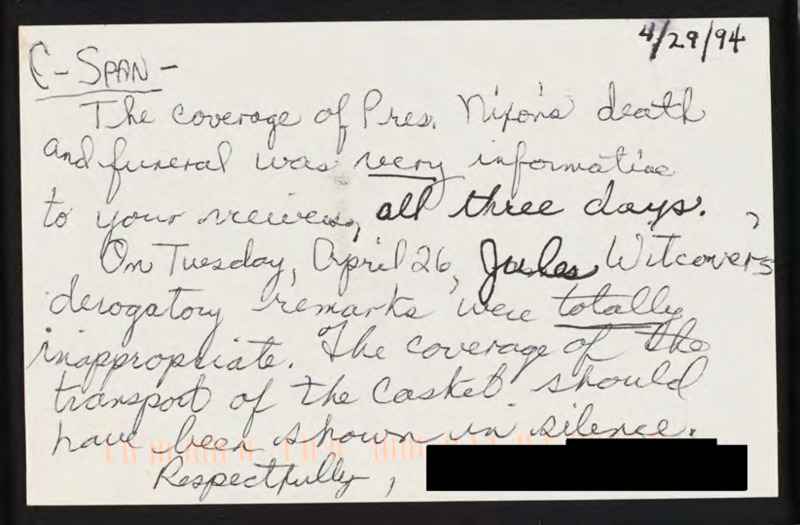 4/29/94
C-SPAN-
The coverage of Pres. Nixon's death
and funeral was very informative
to your viewers, all three days.
On Tuesday, April 26, Jules Witcover's
derogatory remarks were totally
inappropriate. The coverage of the
transport of the casket should
have been shown in silence.
Respectfully,